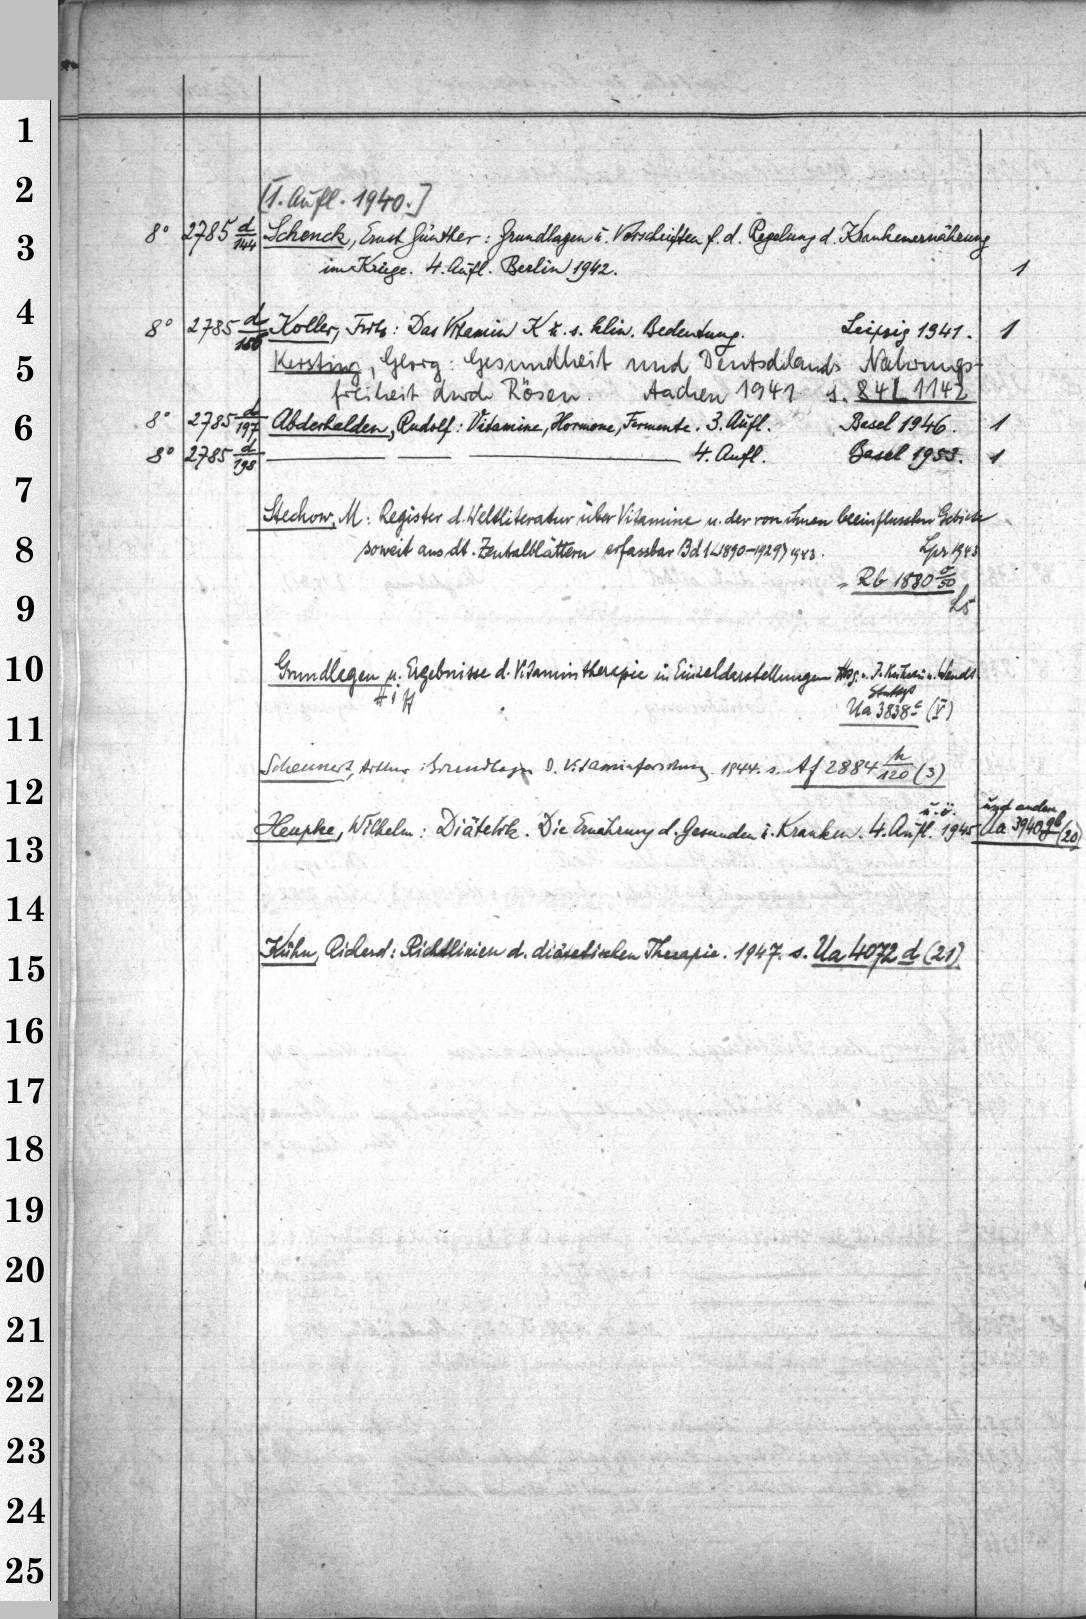 1
2
[1. Aufl. 1940.]
3
8° 2785 d/144 Schenck, Ernst Günther: Grundlagen u. Vorschriften f. d. Regelung d. Krankenernährung
im Kriege. 4. Aufl. Berlin 1942. 1
4
8° 2785 d/156 Koller, Fritz: Das Vitamin K u. s. klin. Bedeutung. Leipzig 1941. 1
5
Kersting, Georg: Gesundheit und Deutschlands Nahrungs-
freiheit durch Rösen. Aachen 1941 s. 84 L 1142
6
8° 2785 d/197 Abderhalden, Rudolf: Vitamine, Hormone, Fermente. 3. Aufl. Basel 1946. 1
8° 2785 d/198 4. Aufl. Basel 1953. 1
7
Stechow, M: Register d. Weltliteratur über Vitamine u. der von ihnen beeinflussten Gebiete
8
soweit aus dt. Zentralblättern erfassbar Bd 1 (1890-1929) 1943. Lpz 1943
Rb 1880 /50
9
LS
10
Grundlagen u. Ergebnisse d. Vitamintherapie in Einzeldarstellungen Hsg. v. J. u. Wendt
Stuttgt
11
Ua 3838 c (V)
Scheunert, Arthur: Grundlagen d. Vitaminforschung. 1944. s. Af 2884 h/120 (3)
12
u. ö. und andere
Heupke, Wilhelm: Diätetik. Die Ernährung d. Gesunden u. Kranken. 4. Aufl. 1945 Ua 3940 gb (20)
13
14
Kühn, Richard: Richtlinien d. diätetischen Therapie. 1947. s. Ua 4072 d (21)
15
16
17
18
19
20
21
22
23
24
25